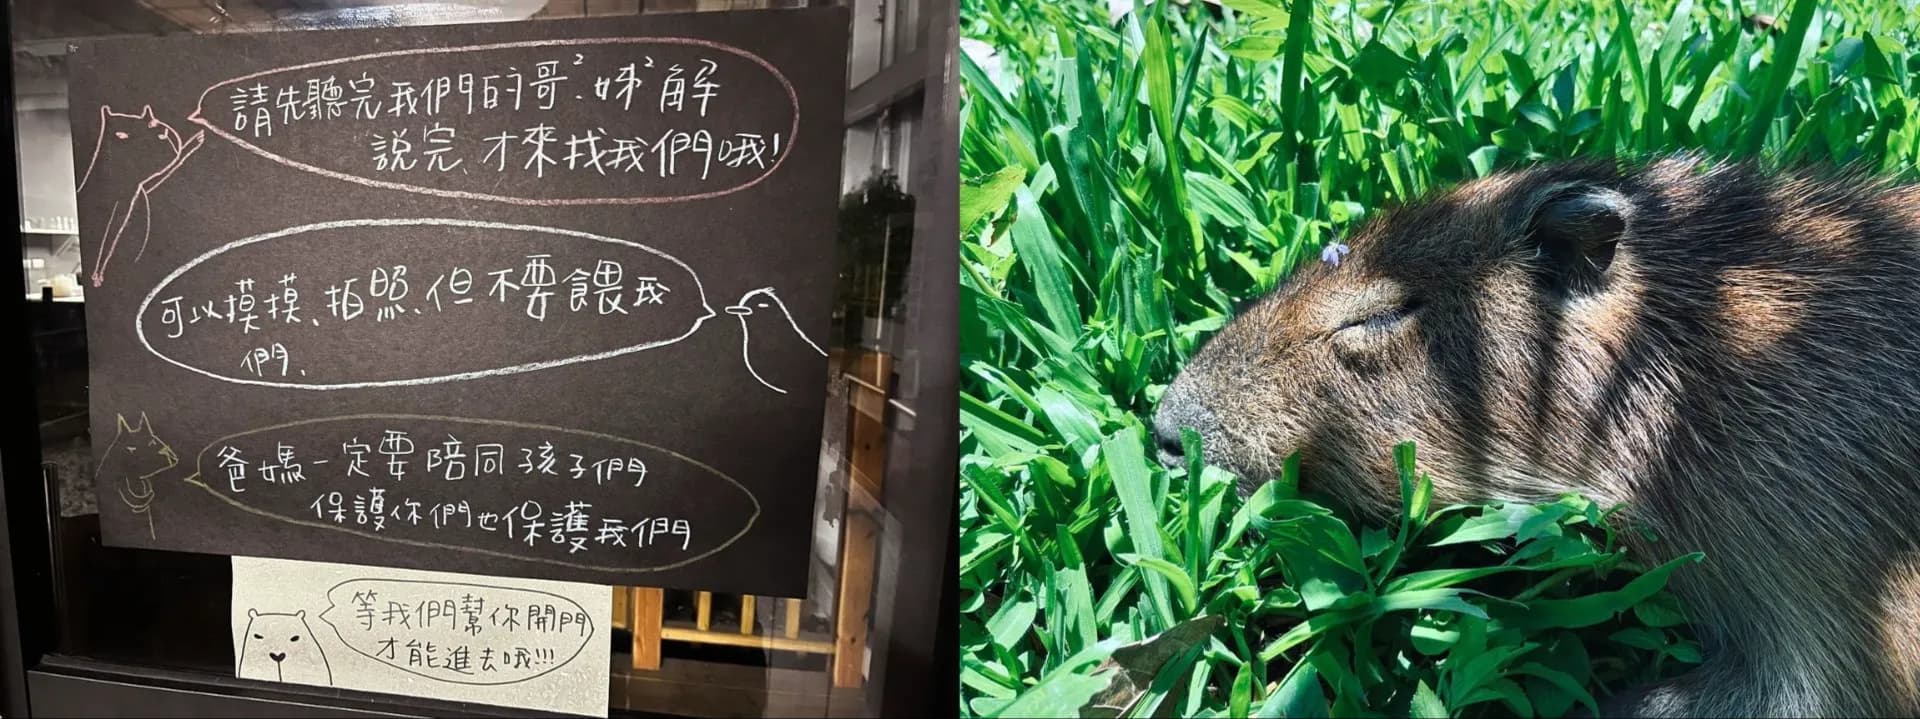 請先聽完我們的哥²、姊²解
說完、才來找我們哦!
可以摸摸、拍照、但不要餵我
們、
爸媽一定要陪同孩子們
保護你們也保護我們
等我們幫你開門
才能進去哦!!!